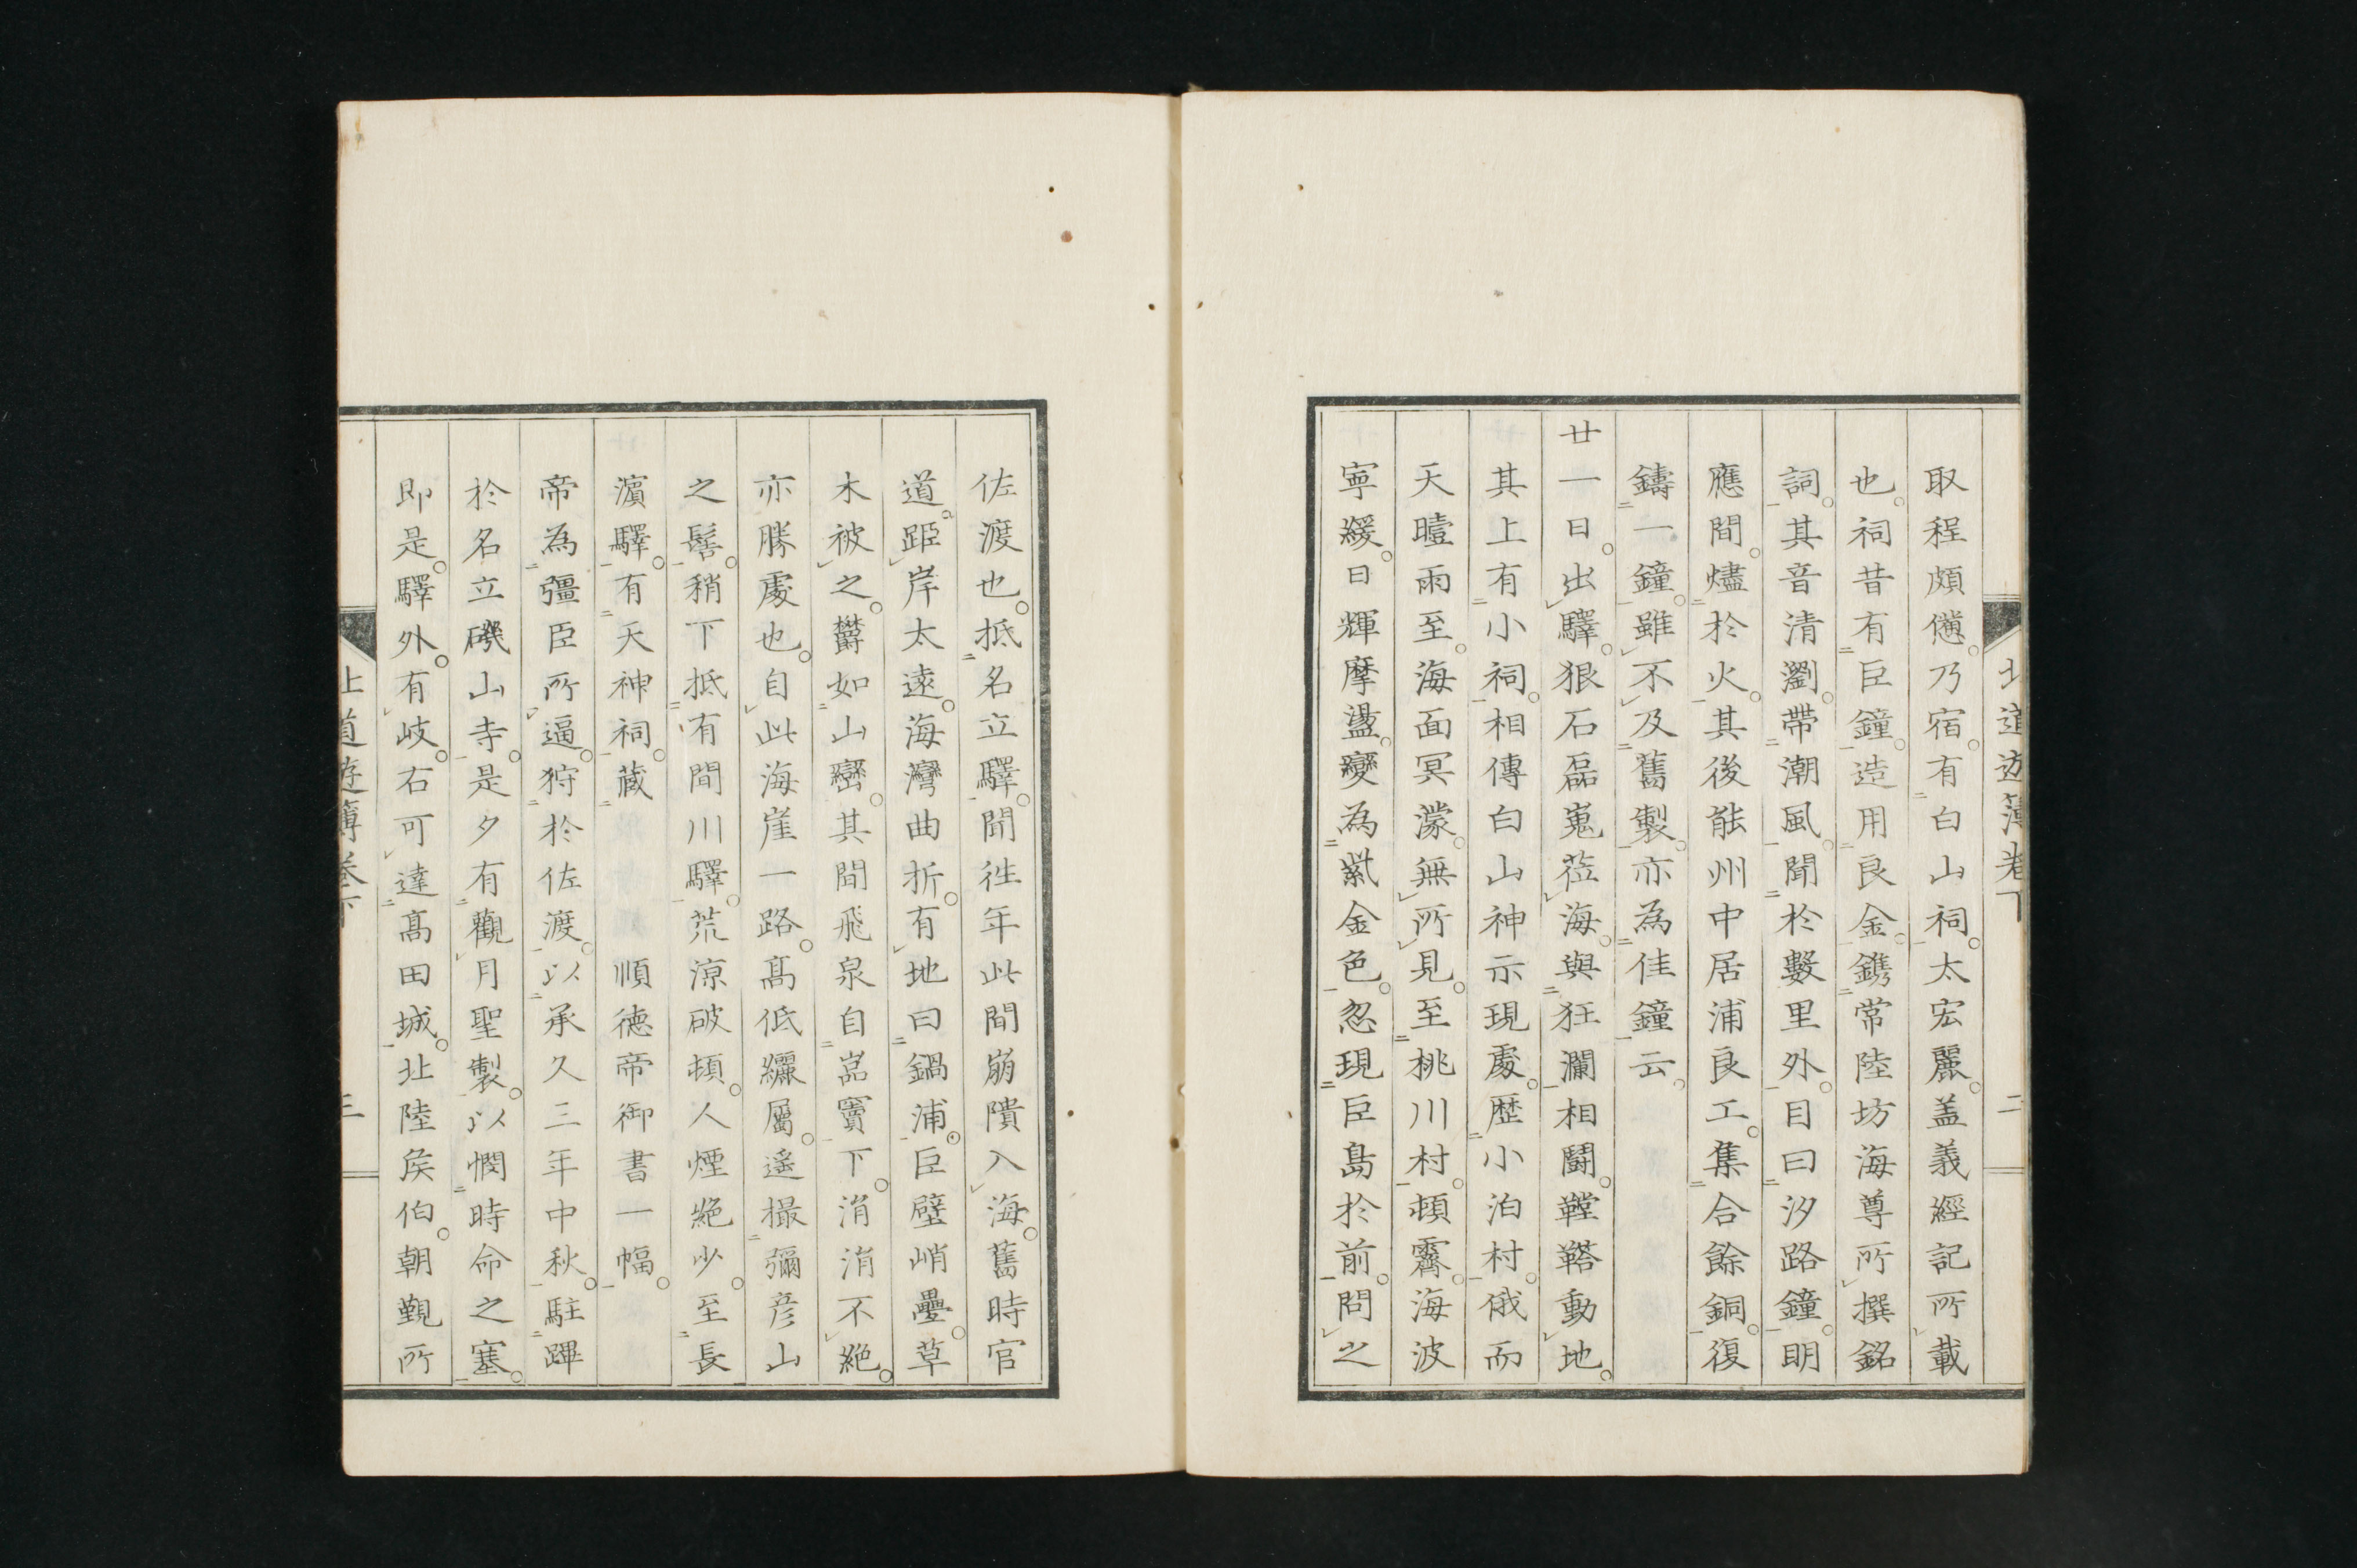 北道遊簿卷下　二
取程頗憊。乃宿。有白山祠。太宏麗。盖義經記所載
也。祠昔有巨鐘。造用良金。鐫常陸坊海尊所撰銘
詞。其音清瀏。帶潮風。聞於數里外。目曰汐路鐘。明
應間。燼於火。其後能州中居浦良工。集合餘銅。復
鑄一鐘。雖不及舊製。亦為佳鐘云。
廿一日。出驛。狠石磊嵬莅海。與狂瀾相鬪。鞺鞳動地。
其上有小祠。相傳白山神示現處。歴小泊村。俄而
天曀雨至。海面冥濛。無所見。至桃川村。頓霽。海波
寧緩。日輝摩盪。變為紫金色。忽現巨島於前。問之
佐渡也。抵名立驛。聞徃年此間崩隤入海。舊時官
道。距岸太遠。海灣曲折。有地曰鍋浦。巨壁峭疊。草
木被之。欝如山巒。其間飛泉自嵓竇下。涓涓不絶。
亦勝處也。自此海崖一路。髙低纚屬。遙撮彌彦山
之髻。稍下抵有間川驛。荒涼破頓。人煙絶少。至長
濵驛。有天神祠。藏　　順德帝御書一幅。
帝為彊臣所逼。狩於佐渡。以承久三年中秋。駐蹕
於名立磯山寺。是夕有觀月聖製。以憫時命之塞。
即是。驛外。有岐。右可達髙田城。北陸矦伯。朝覲所
北道遊簿卷下　三